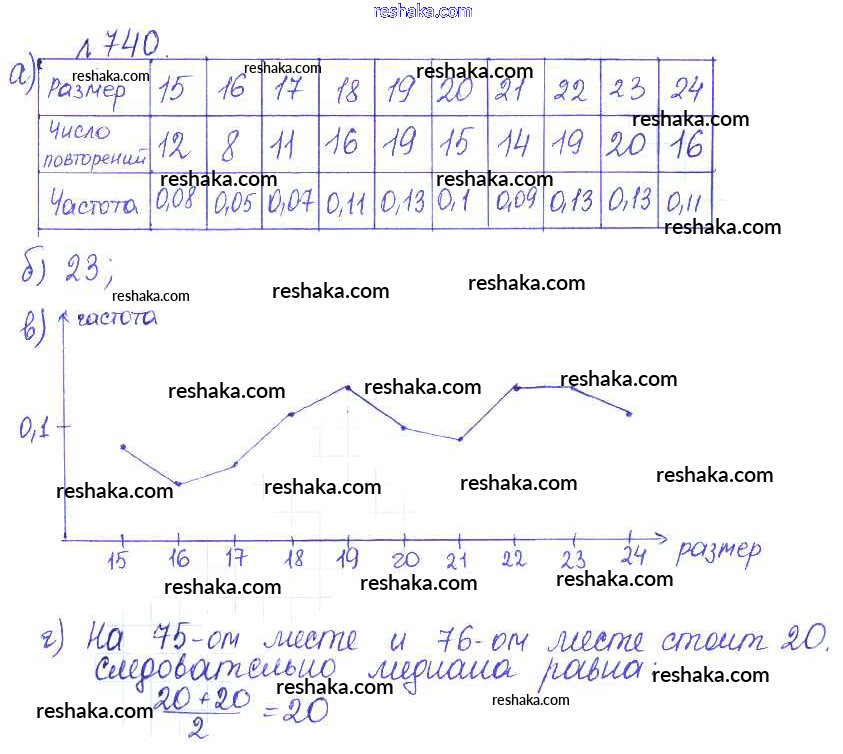 reshaka.com
№ 740.
reshaka.com reshaka.com reshaka.com
а)
Размер 15 16 17 18 19 20 21 22 23 24
reshaka.com
Число повторений 12 8 11 16 19 15 14 19 20 16
reshaka.com reshaka.com
Частота 0,08 0,05 0,07 0,11 0,13 0,1 0,09 0,13 0,13 0,11
reshaka.com
б) 23;
reshaka.com reshaka.com reshaka.com
в) частота
reshaka.com reshaka.com reshaka.com
0,1
reshaka.com reshaka.com reshaka.com reshaka.com
15 16 17 18 19 20 21 22 23 24 размер
reshaka.com reshaka.com reshaka.com
г) На 75-ом месте и 76-ом месте стоит 20.
следовательно медиана равна:
reshaka.com reshaka.com reshaka.com reshaka.com
20+20
2
=20